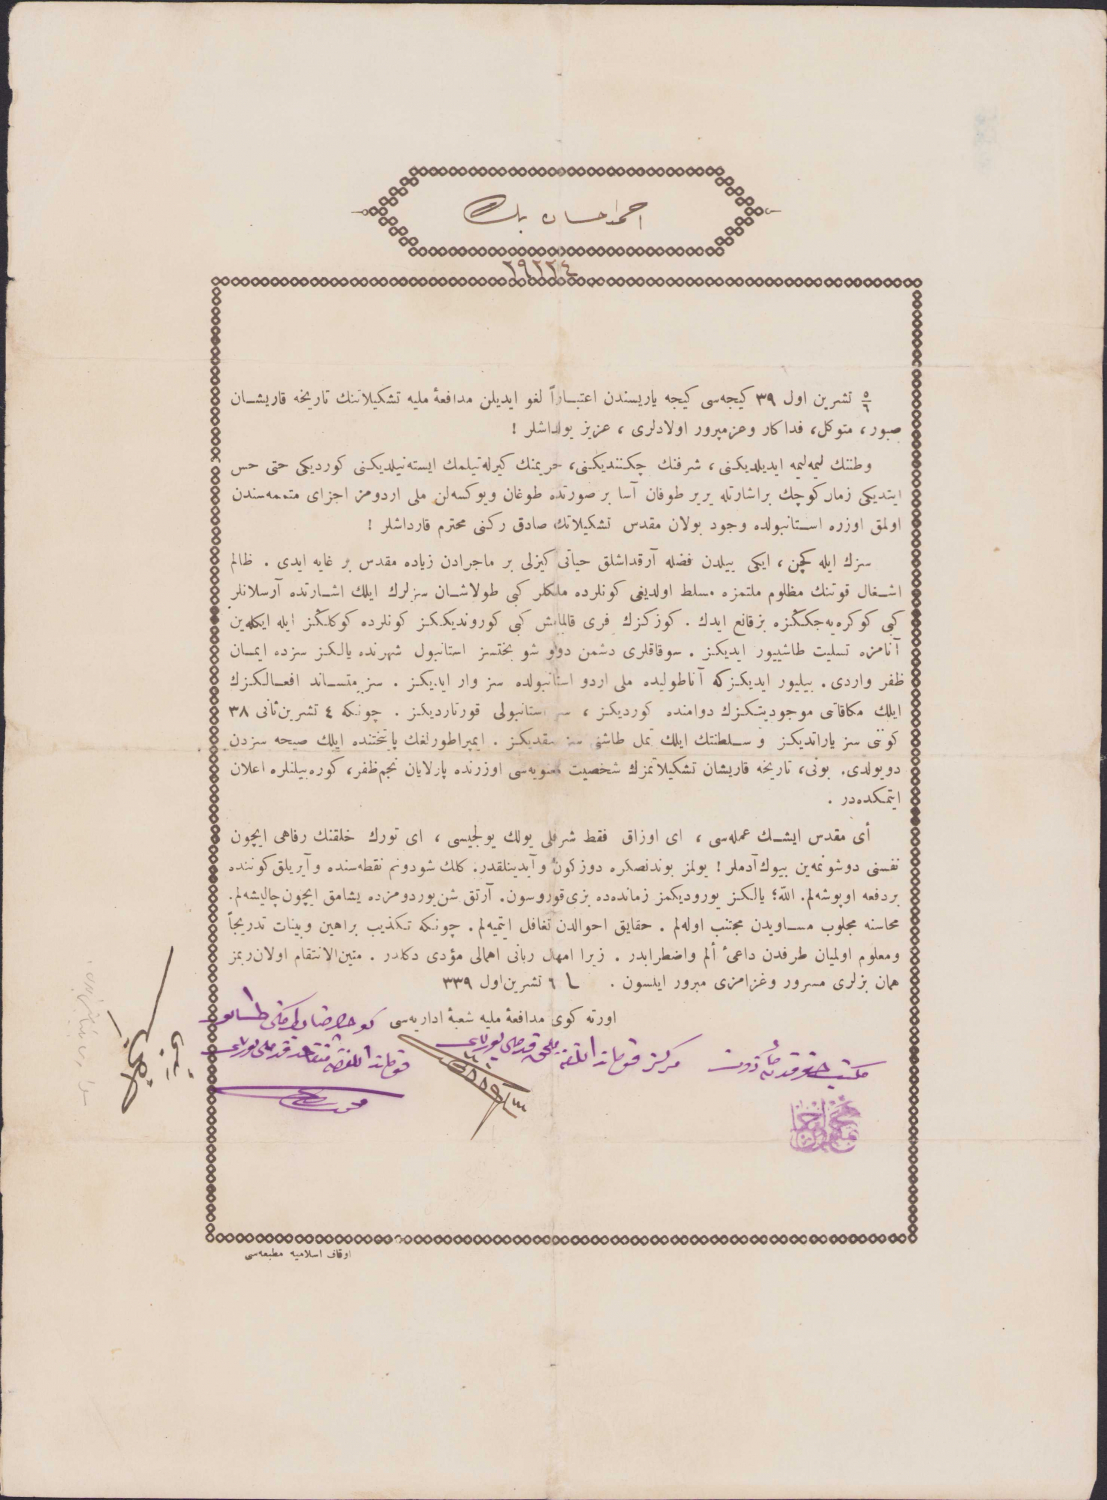 احمد احسان بك
٢٩٢٢٤
٥/٦ تشرين اول ٣٩ كيجه‌سى كيجه ياريسندن اعتباراً لغو ايديلن مدافعهٔ مليه تشكيلاتنك تاريخه قاريشان
صبور، متوكل، فداكار وعزمپرور اولادلرى، عزيز يولداشلر !
وطننك ليمه‌ليمه ايديلديكنى، شرفنك چكنيديكنى، حريمنك كيرله‌تيلمك ايسته‌نيلديكنى كورديكى حتى حس
ايتديكى زمان كوچك بر اشارتله يربر طوفان آسا بر صورتده طوغان ويوكسه‌لن ملى اردومز اجزاى متممه‌سندن
اولمق اوزره استانبولده وجود بولان مقدس تشكيلاتك صادق ركنى محترم قارداشلر !
سزك ايله كچن، ايكى ييلدن فضله آرقداشلق حياتى كيزلى بر ماجرادن زياده مقدس بر غايه ايدى. ظالم
اشغال قوتنك مظلوم ملتمزه مسلط اولديغى كونلرده ملكلر كبى طولاشان سزلرك ايلك اشارتده آرسلانلر
كبى كوكره‌يه‌جككزه بز قانع ايدك. كوزكزك فرى قالمامش كبى كورونديككز كونلرده كوكلكز ايله ايكله‌ين
آنامزه تسليت طاشييور ايديكز. سوقاقلرى دشمن دولو شو بختسز استانبول شهرنده يالكز سزده ايمان
ظفر واردى. بيليور ايديكز كه آناطوليده ملى اردو استانبولده سز وار ايديكز. سز متساند افعالكزك
ايلك مكافاتى موجوديتكزك دوامنده كورديكز، سز استانبولى قورتارديكز. چونكه ٤ تشرين ثانى ٣٨
كونى سز ياراتديكز و سلطنتك ايلك تمل طاشنى سز سقديكز. ايمپراطورلغك پايتختنده ايلك صيحه سزدن
دويولدى. بونى، تاريخه قاريشان تشكيلاتمزك شخصيت معنويه‌سى اوزرنده پارلايان نجم ظفر، كوره‌بيلنلره اعلان
ايتمكده‌در.
أى مقدس ايشك عمله‌سى، اى اوزاق فقط شرفلى يولك يولجيسى، اى تورك خلقنك رفاهى ايچون
نفسنى دوشونمه‌ين بيوك آدملر! يولمز بوندنصكره دوزكون وآيدينلقدر. كلك شو دونم نقطه‌سنده وآيريلق كوننده
بر دفعه اوپوشه‌لم. الله؛ يالكز يوروديكمز زمانده‌ده بزى قوروسون. آرتق شن يوردومزده يشامق ايچون چاليشه‌لم.
محاسنه مجلوب مساويدن مجتنب اوله‌لم. حقايق احوالدن تغافل ايتميه‌لم. چونكه تكذيب براهين وبينات تدريجاً
ومعلوم اولميان طرفدن داعئ ألم واضطرابدر. زيرا امهال ربانى اهمالى مؤدى دكلدر. متين الانتقام اولان ربمز
همان بزلرى مسرور وغزامزى مبرور ايتسون. ٦ تشرين اول ٣٣٩
اورته كوى مدافعهٔ مليه شعبهٔ اداريه‌سى
مركز قوماندانلغنه ملحق
اوقاف اسلاميه مطبعه‌سى